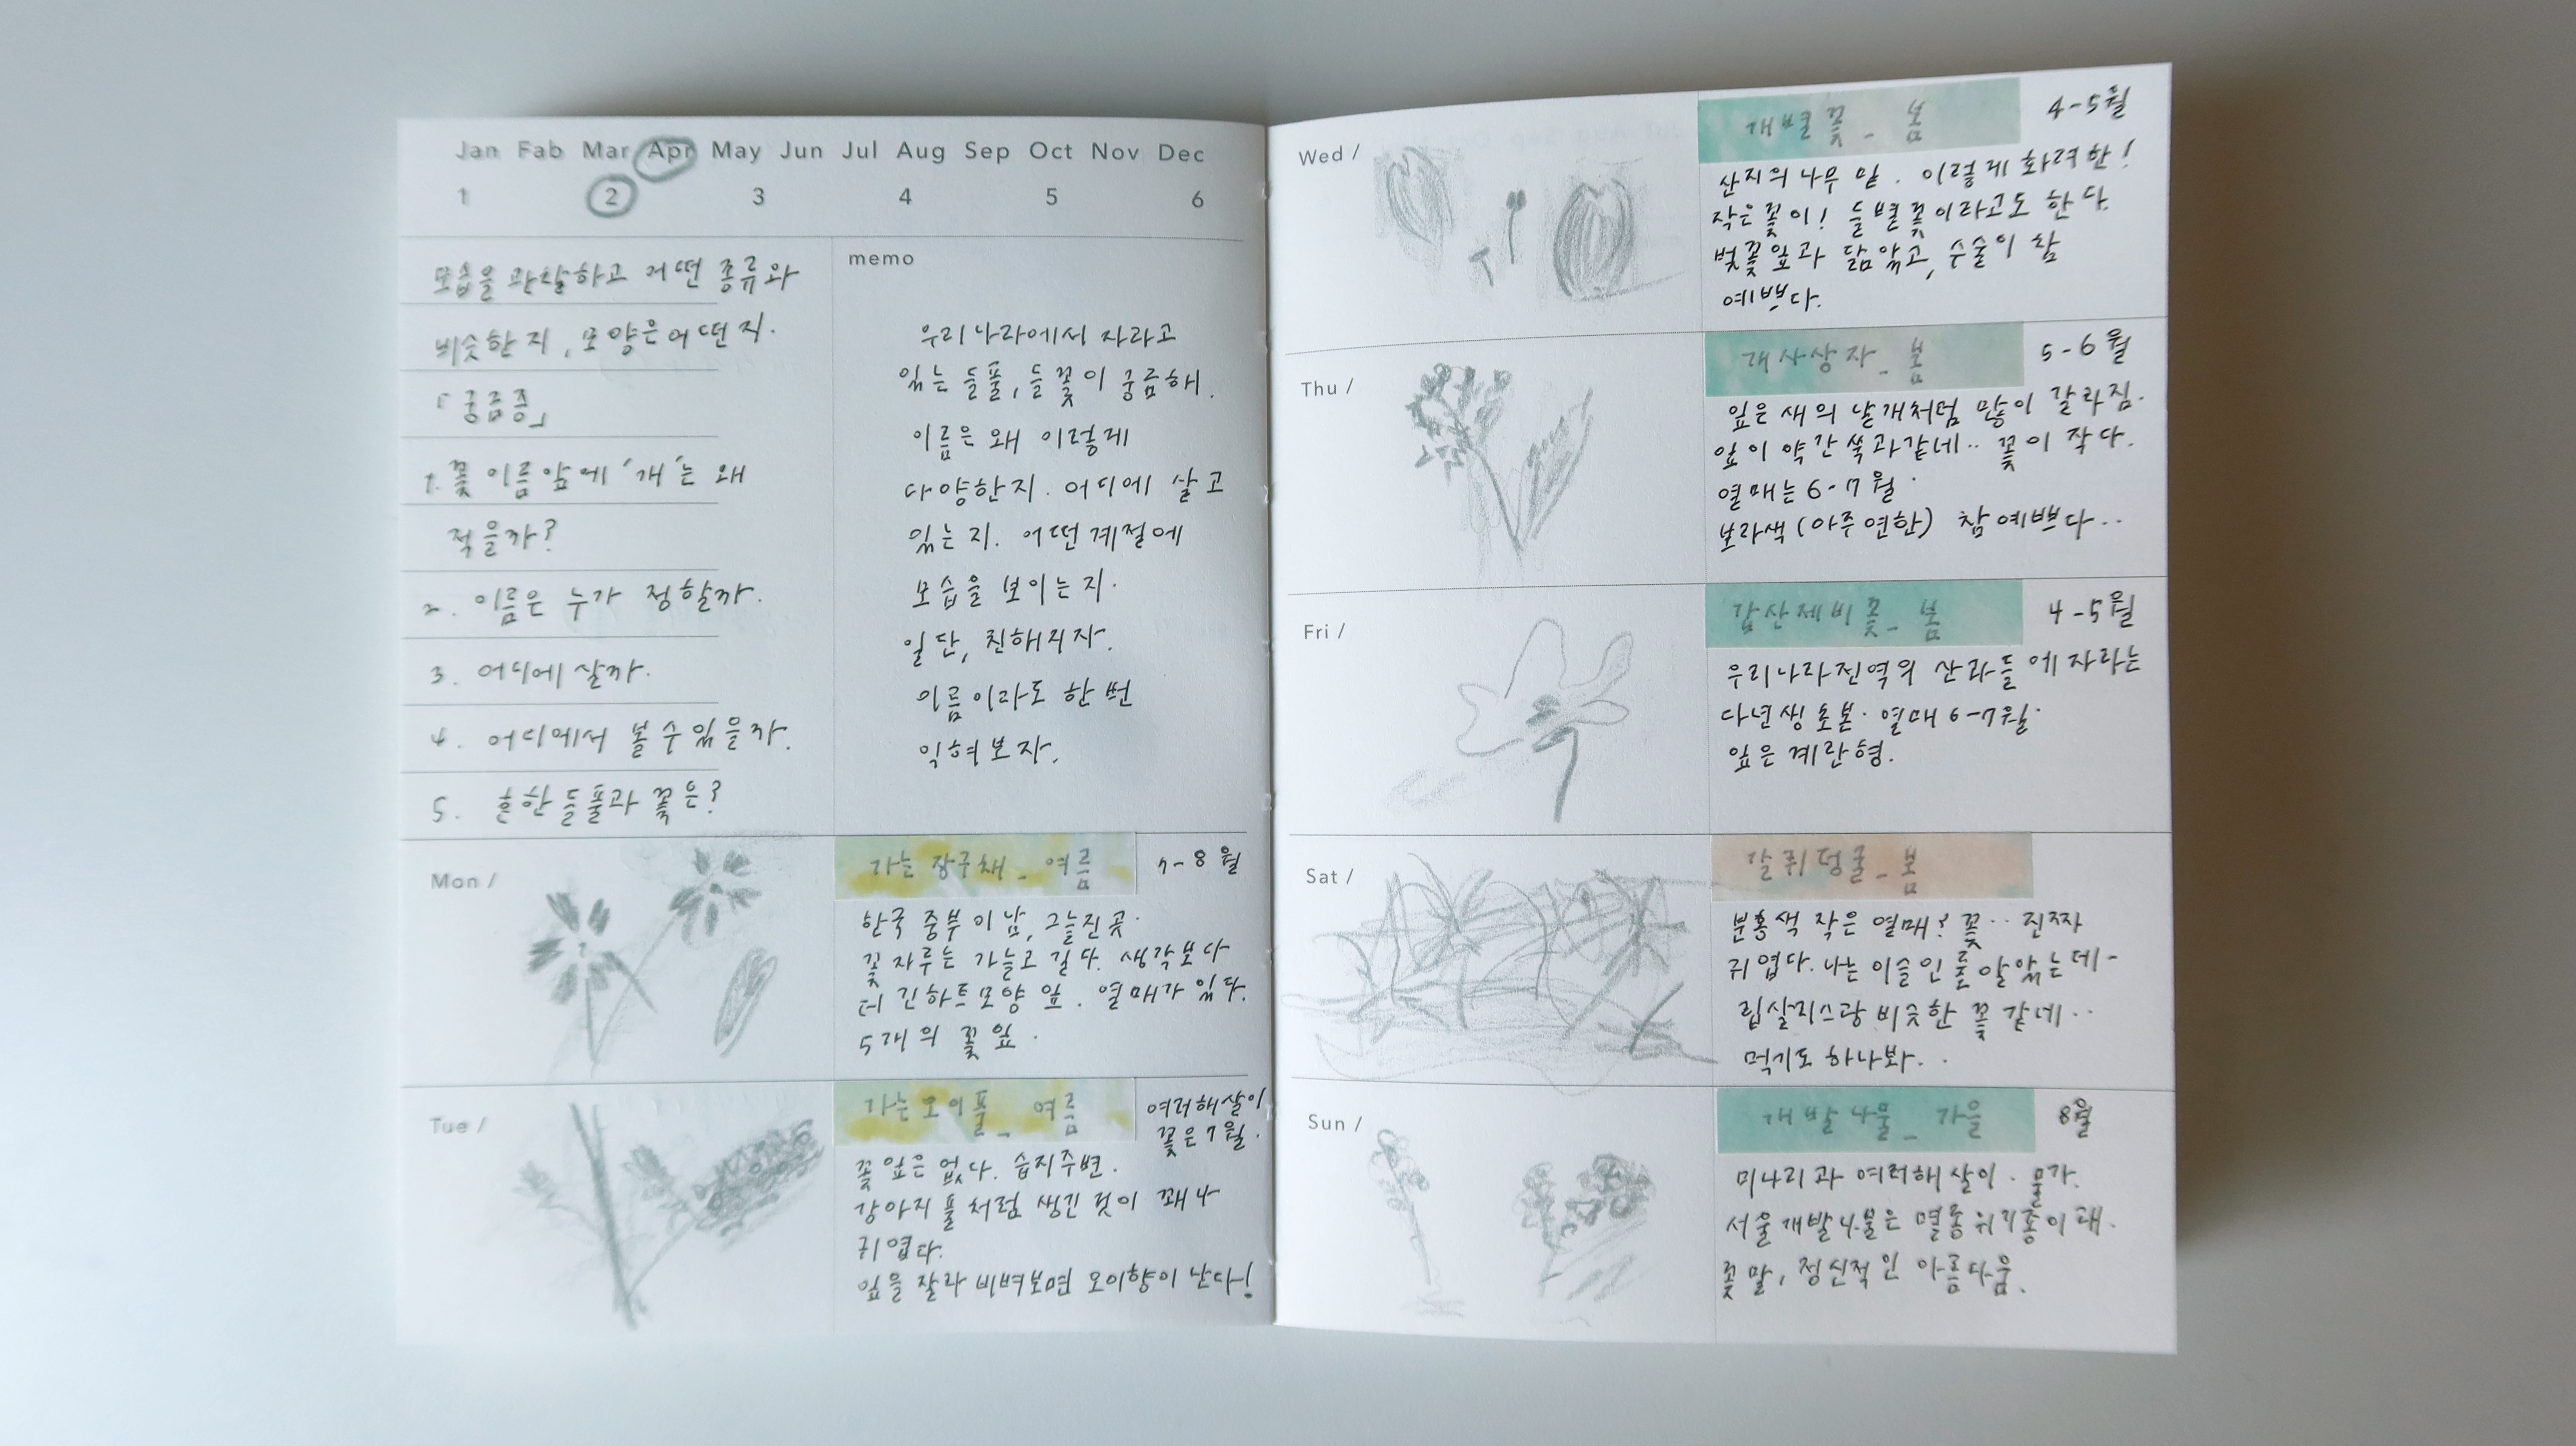 Jan Fab Mar Apr May Jun Jul Aug Sep Oct Nov Dec
1 2 3 4 5 6
모습을 관찰하고 어떤 종류와
비슷한지, 모양은 어떤지.
「궁금증」
1. 꽃 이름 앞에 '개'는 왜
적을까?
2. 이름은 누가 정할까.
3. 어디에 살까.
4. 어디에서 볼 수 있을까.
5. 흔한 들풀과 꽃은?
memo
우리나라에서 자라고
있는 들풀, 들꽃이 궁금해.
이름은 왜 이렇게
다양한지. 어디에 살고
있는지. 어떤 계절에
모습을 보이는지.
일단, 친해지자.
이름이라도 한 번
익혀보자.
Mon /
가는 장구채_여름
7-8월
한국 중부 이남, 그늘진 곳.
꽃자루는 가늘고 길다. 생각보다
더 긴 하트모양 잎. 열매가 있다.
5개의 꽃잎.
Tue /
가는오이풀_여름
여러해살이
꽃은 7월.
꽃잎은 없다. 습지주변.
강아지풀처럼 생긴 것이 꽤나
귀엽다.
잎을 잘라 비벼보면 오이향이 난다!
Wed /
개별꽃_봄
4-5월
산지의 나무 밑. 이렇게 화려한!
작은 꽃이! 들별꽃이라고도 한다.
벚꽃잎과 닮았고, 수술이 참
예쁘다.
Thu /
개사상자_봄
5-6월
잎은 새의 날개처럼 많이 갈라짐.
잎이 약간 쑥과 같네.. 꽃이 작다.
열매는 6-7월.
보라색(아주 연한) 참 예쁘다..
Fri /
갑산제비꽃_봄
4-5월
우리나라 전역의 산과 들에 자라는
다년생 초본. 열매 6-7월.
잎은 계란형.
Sat /
갈퀴덩굴_봄
분홍색 작은 열매? 꽃.. 진짜
귀엽다. 나는 이슬인 줄 알았는데-
립살리스랑 비슷한 꽃 같네..
먹기도 하나봐..
Sun /
개발나물_가을
8월
미나리과 여러해살이. 물가.
서울개발나물은 멸종위기종이래.
꽃말, 정신적인 아름다움.